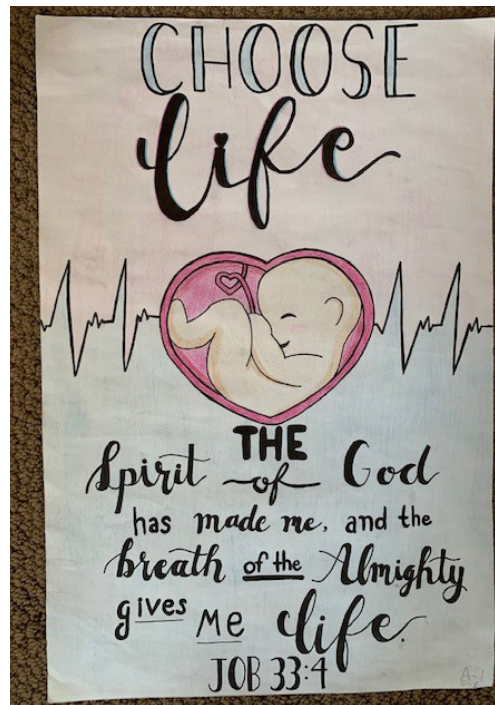 CHOOSE
life
THE
Spirit of God
has made me, and the
breath of the Almighty
gives me life.
JOB 33:4
A-1